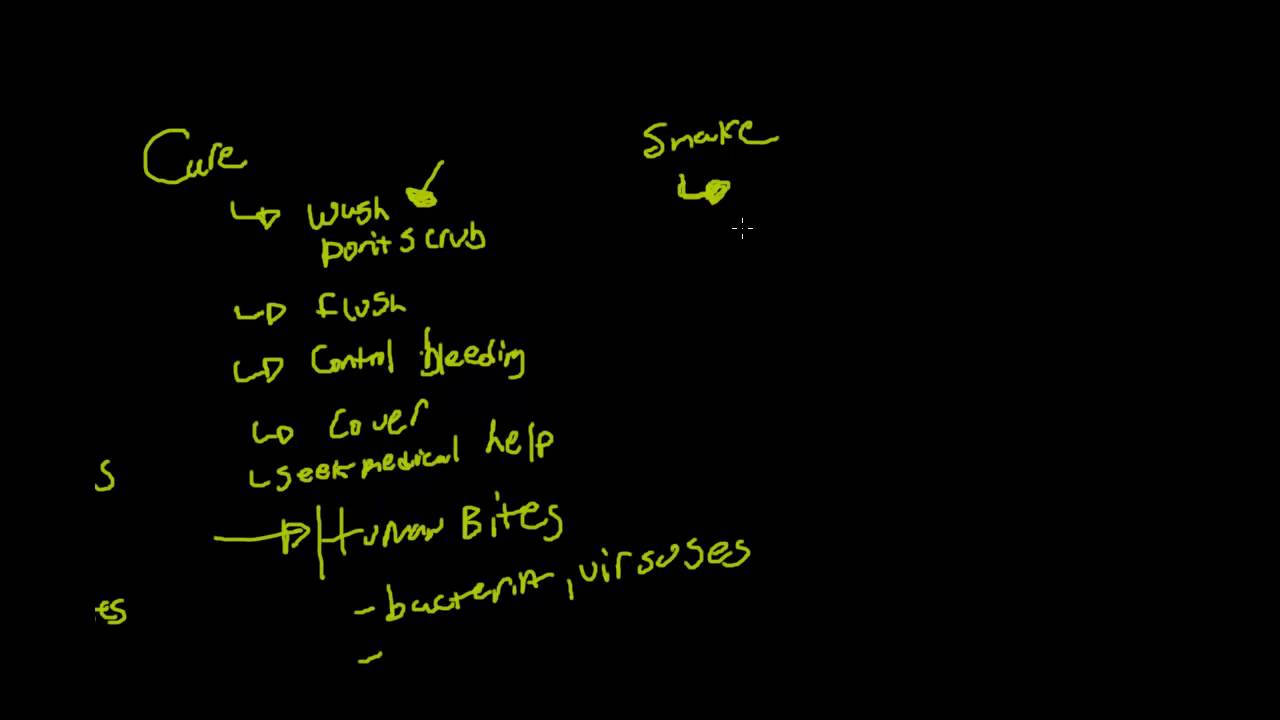 Care
Wash
Don't scrub
flush
Control bleeding
Cover
seek medical help
Human Bites
- bacteria, virsuses
-
s
es
Snake